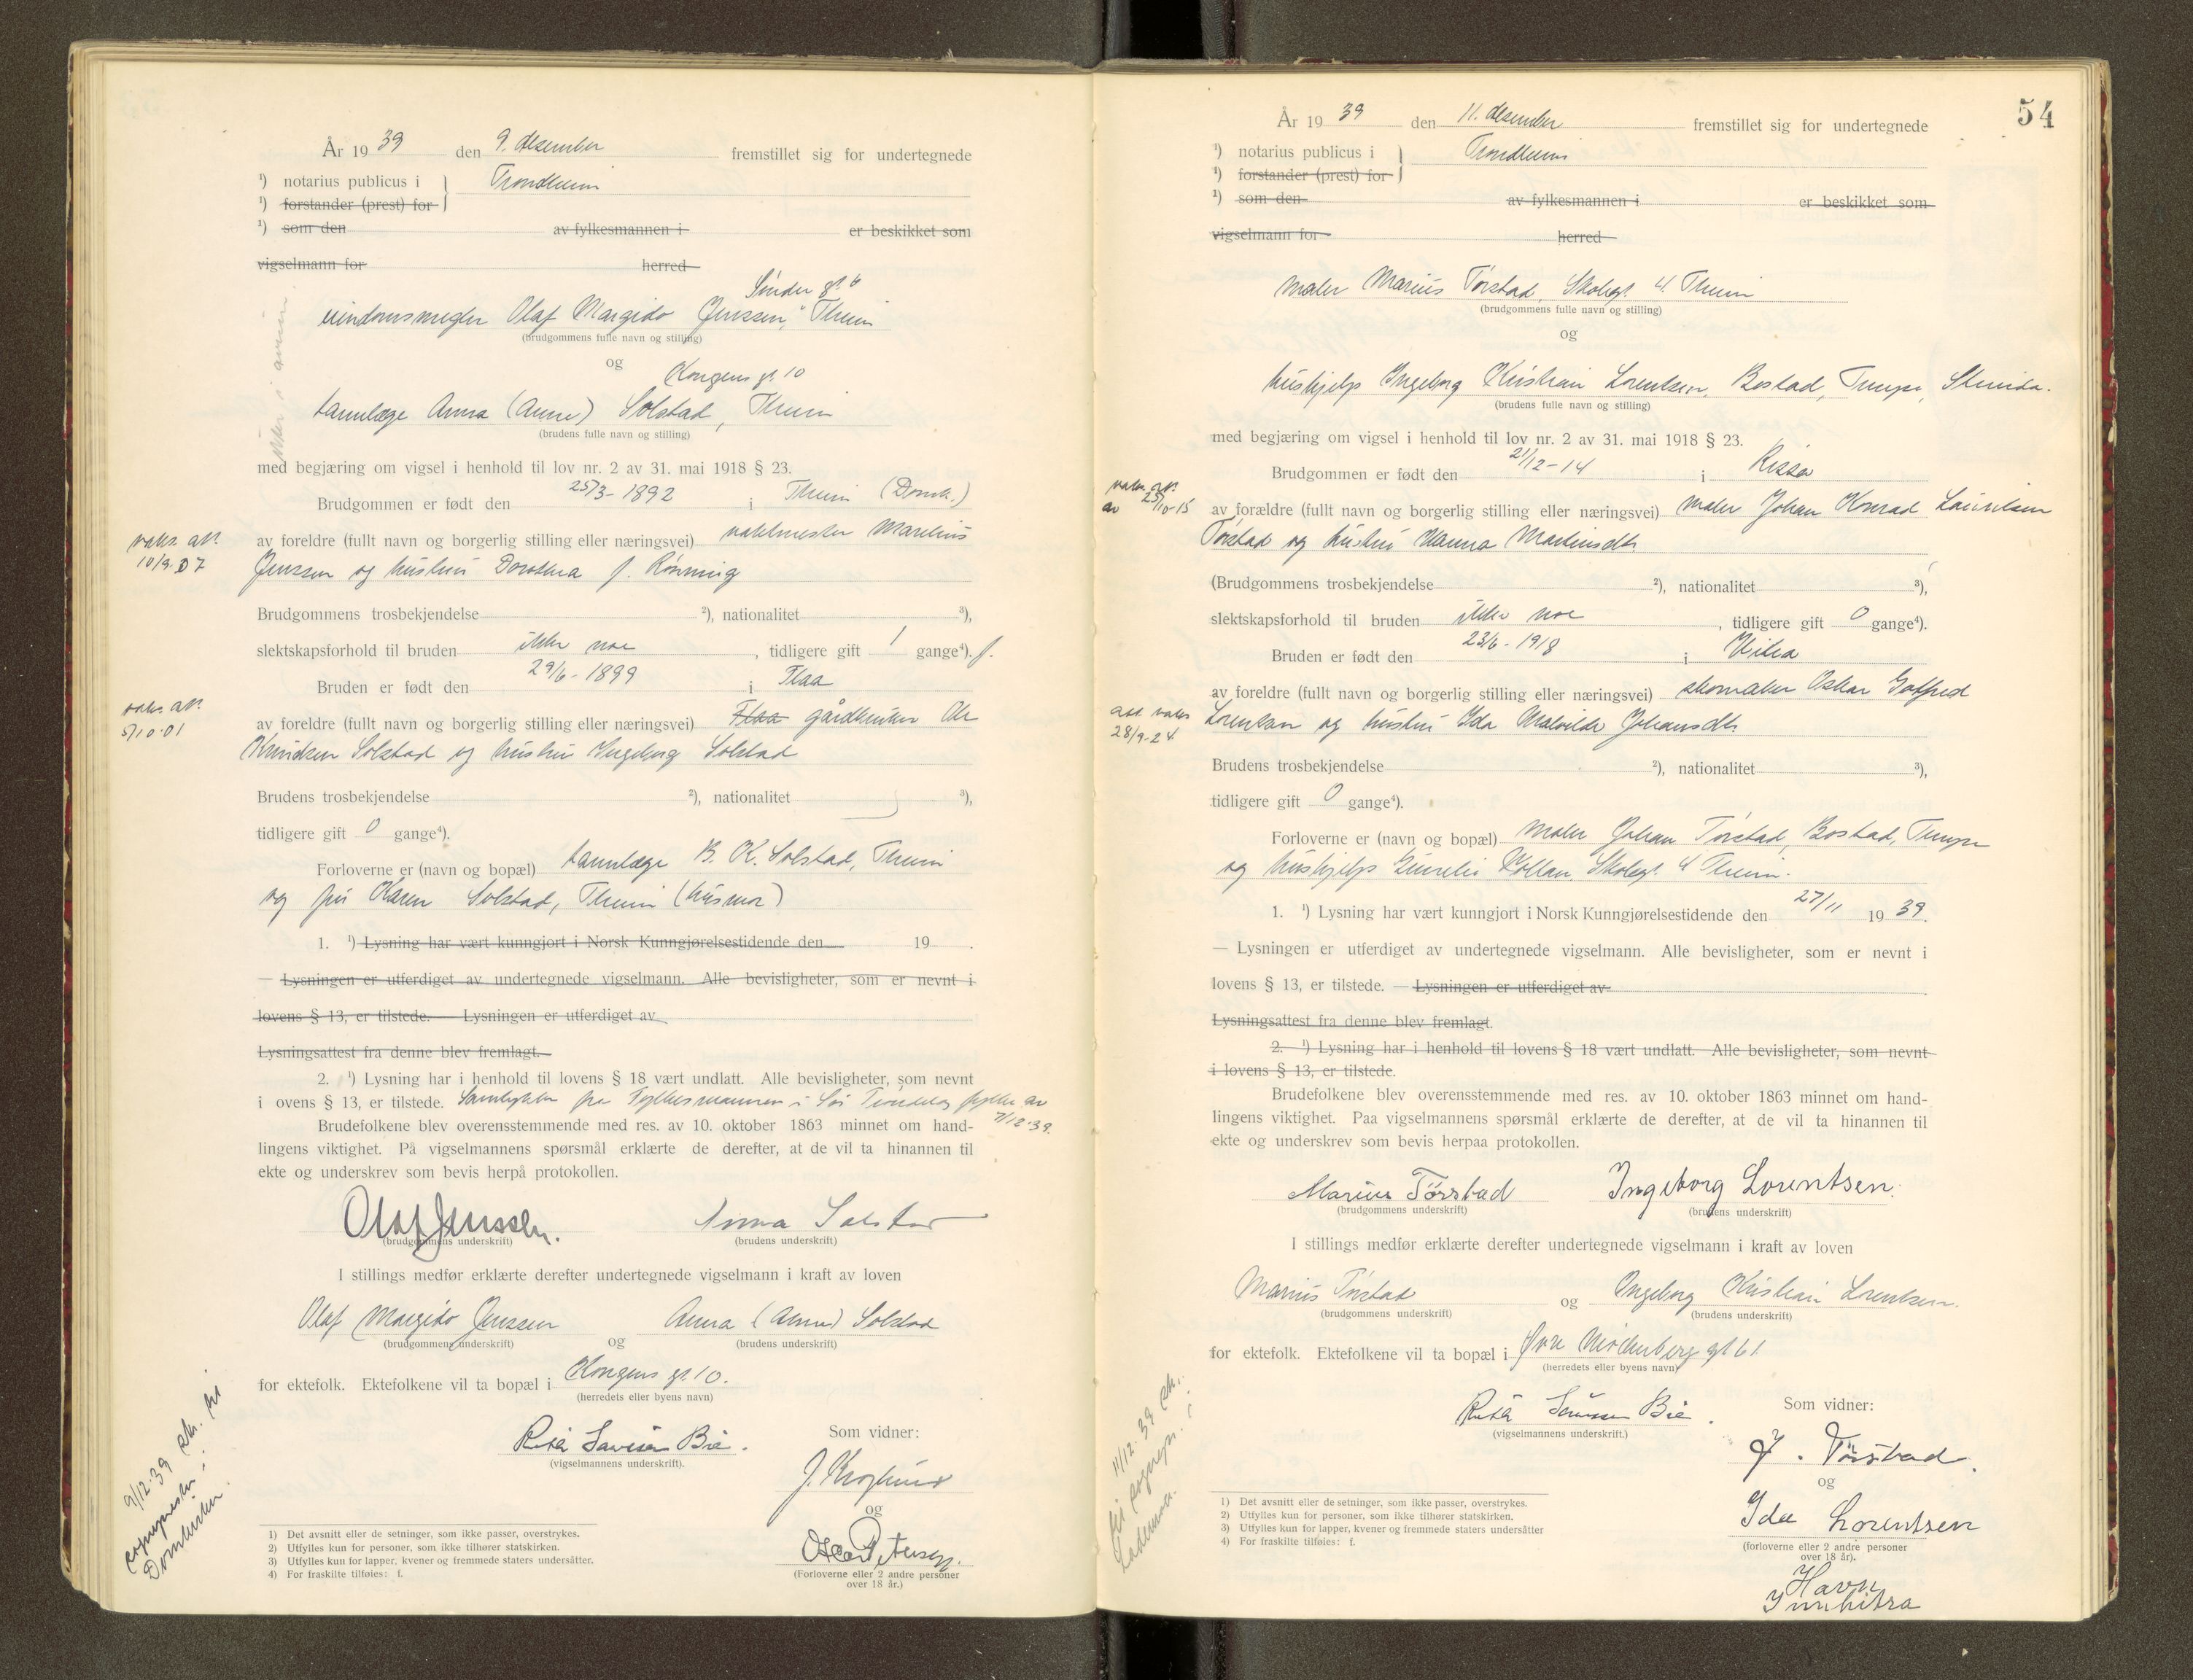 År 19 39 den 9. desember fremstillet sig for undertegnede
¹) notarius publicus i Trondheim
¹) forstander (prest) for
¹) som den av fylkesmannen i er beskikket som
vigselmann for herred
Søndre gt. 6
eiendomsmegler Olaf Margido Jenssen, Theim
(brudgommens fulle navn og stilling)
og
Kongens gt. 10
tannlæge Anna (Anne) Solstad, Theim
(brudens fulle navn og stilling)
med begjæring om vigsel i henhold til lov nr. 2 av 31. mai 1918 § 23.
Brudgommen er født den 25/3-1892 i Theim (Domk.)
vaks. att. 10/9.07
av foreldre (fullt navn og borgerlig stilling eller næringsvei) vaktmester Marelius
Jenssen og hustru Dorothea f. Rønning
Brudgommens trosbekjendelse ²), nationalitet ³),
slektskapsforhold til bruden ikke noe, tidligere gift 1 gange⁴). f.
Bruden er født den 29/6-1899 i Flaa
vaks. att. 5/10.01
av foreldre (fullt navn og borgerlig stilling eller næringsvei) Flaa gårdbruker Ole
Knudsen Solstad og hustru Ingeborg Solstad
Brudens trosbekjendelse ²), nationalitet ³),
tidligere gift 0 gange⁴).
Forloverne er (navn og bopæl) tannlæge B. K. Solstad, Theim
og fru Karen Solstad, Theim (husmor)
1. ¹) Lysning har vært kunngjort i Norsk Kunngjørelsestidende den 19 .
— Lysningen er utferdiget av undertegnede vigselmann. Alle bevisligheter, som er nevnt i
lovens § 13, er tilstede. — Lysningen er utferdiget av
Lysningsattest fra denne blev fremlagt.
2. ¹) Lysning har i henhold til lovens § 18 vært undlatt. Alle bevisligheter, som nevnt
i ovens § 13, er tilstede. Samtykke fra Fylkesmannen i Sør Trøndelag fylke av
7/12.39.
Brudefolkene blev overensstemmende med res. av 10. oktober 1863 minnet om hand-
lingens viktighet. På vigselmannens spørsmål erklærte de derefter, at de vil ta hinannen til
ekte og underskrev som bevis herpå protokollen.
Olaf Jenssen. Anna Solstad
(brudgommens underskrift) (brudens underskrift)
I stillings medfør erklærte derefter undertegnede vigselmann i kraft av loven
Olaf Margido Jenssen og Anna (Anne) Solstad
(brudgommens underskrift) (brudens underskrift)
for ektefolk. Ektefolkene vil ta bopæl i Kongens gt. 10.
(herredets eller byens navn)
9/12.39 sk. til
sogneprest i
Domkirken.
Bie. Som vidner:
(vigselmannens underskrift).
og
(Forloverne eller 2 andre personer
over 18 år.)
1) Det avsnitt eller de setninger, som ikke passer, overstrykes.
2) Utfylles kun for personer, som ikke tilhører statskirken.
3) Utfylles kun for lapper, kvener og fremmede staters undersåtter.
4) For fraskilte tilføies: f.
54
År 19 39 den 11. desember fremstillet sig for undertegnede
¹) notarius publicus i Trondheim
¹) forstander (prest) for
¹) som den av fylkesmannen i er beskikket som
vigselmann for herred
maler Marius Tørstad, Skolegt. 4 Theim
(brudgommens fulle navn og stilling)
og
hushjelp Ingeborg Kristian Lorentsen, Bostad,
(brudens fulle navn og stilling)
med begjæring om vigsel i henhold til lov nr. 2 av 31. mai 1918 § 23.
Brudgommen er født den 21/12-14 i Rissa
vaks. att.
av 25/10-15
av forældre (fullt navn og borgerlig stilling eller næringsvei) maler Johan Konrad Lauritsen
Tørstad og hustru Hanna Martinsdtr.
(Brudgommens trosbekjendelse ²), nationalitet ³),
slektskapsforhold til bruden ikke noe, tidligere gift 0 gange⁴).
Bruden er født den 23/6-1918 i
av foreldre (fullt navn og borgerlig stilling eller næringsvei) skomaker Oskar Gotfred
att. vaks
28/9-24
Lorentsen og hustru Ida Johansdtr.
Brudens trosbekjendelse ²), nationalitet ³),
tidligere gift 0 gange⁴).
Forloverne er (navn og bopæl) maler Johan Tørstad, Bostad,
og hushjelp Skolegt. 4 Theim.
1. ¹) Lysning har vært kunngjort i Norsk Kunngjørelsestidende den 27/11 19 39.
— Lysningen er utferdiget av undertegnede vigselmann. Alle bevisligheter, som er nevnt i
lovens § 13, er tilstede. — Lysningen er utferdiget av
Lysningsattest fra denne blev fremlagt.
2. ¹) Lysning har i henhold til lovens § 18 vært undlatt. Alle bevisligheter, som nevnt
i lovens § 13, er tilstede.
Brudefolkene blev overensstemmende med res. av 10. oktober 1863 minnet om hand-
lingens viktighet. Paa vigselmannens spørsmål erklærte de derefter, at de vil ta hinannen til
ekte og underskrev som bevis herpaa protokollen.
Marius Tørstad Ingeborg Lorentsen.
(brudgommens underskrift) (brudens underskrift)
I stillings medfør erklærte derefter undertegnede vigselmann i kraft av loven
Marius Tørstad og Ingeborg Kristian Lorentsen.
(brudgommens underskrift) (brudens underskrift)
for ektefolk. Ektefolkene vil ta bopæl i Øvre Møllenberg gt 61
(herredets eller byens navn)
11/12.39 sk.
til sognepr. i
Lademoen.
Bie. Som vidner:
(vigselmannens underskrift.)
J. Tørstad.
og
Ida Lorentsen
(forloverne eller 2 andre personer
over 18 år).
Havn
Innhitra
1) Det avsnitt eller de setninger, som ikke passer, overstrykes.
2) Utfylles kun for personer, som ikke tilhører statskirken.
3) Utfylles kun for lapper, kvener og fremmede staters undersåtter
4) For fraskilte tilføies: f.